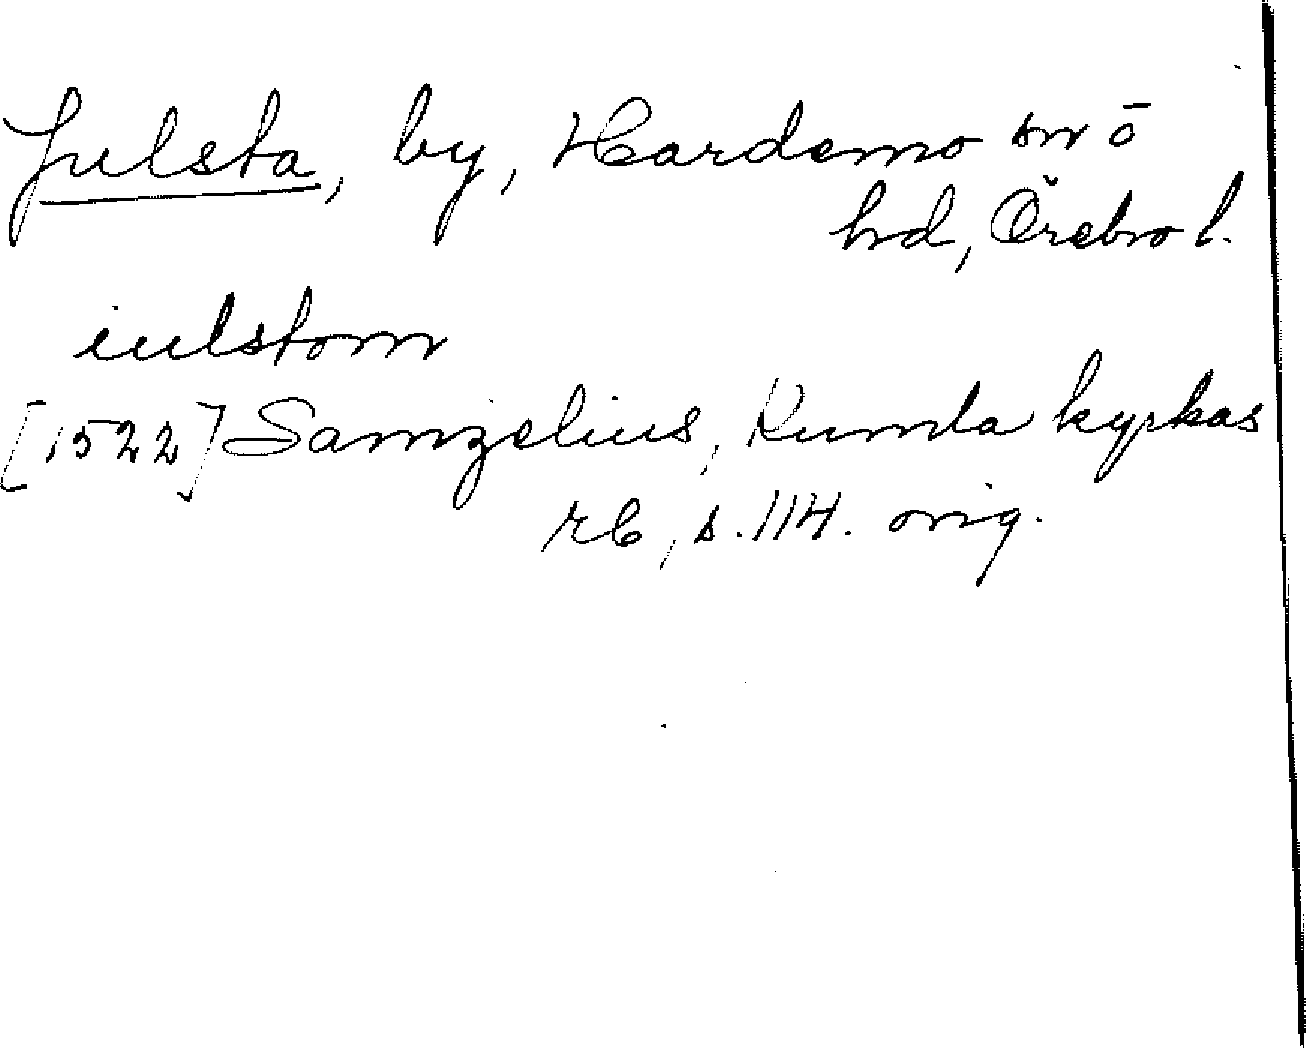 Julsta, by, Hardemo sn o
hd, Örebro l.
iulstom
[1522] Samzelius, Kumla kyrkas
rb, s. 114. orig.